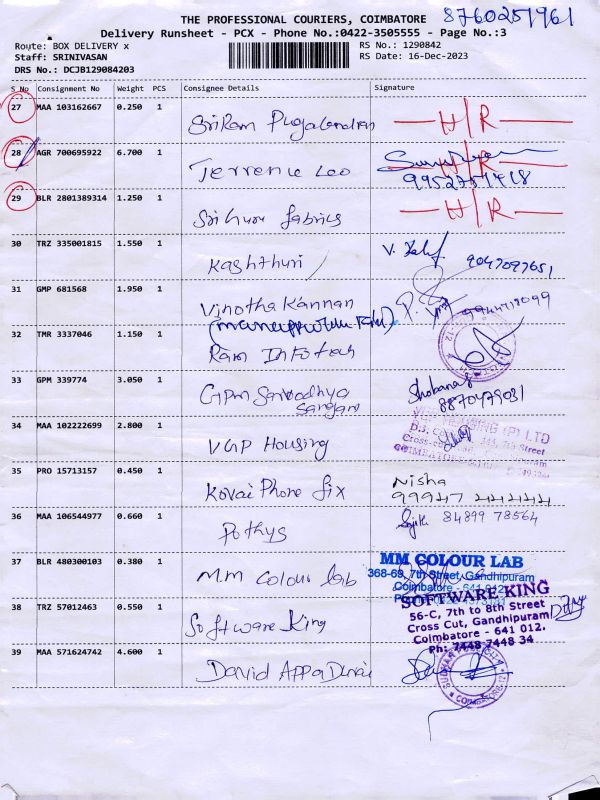 THE PROFESSIONAL COURIERS, COIMBATORE
8760251961
Delivery Runsheet - PCX - Phone No.:0422-3505555 - Page No.:3
Route: BOX DELIVERY x
RS No.: 1290842
Staff: SRINIVASAN
RS Date: 16-Dec-2023
DRS No.: DCJB129084203
S No Consignment No Weight PCS Consignee Details Signature
27 MAA 103162667 0.250 1 H/R
28 AGR 700695922 6.700 1 Terrence Leo H/R
29 BLR 2801389314 1.250 1 H/R
30 TRZ 335001815 1.550 1 Kashthuri
31 GMP 681568 1.950 1 Vinotha Kannan
32 TMR 3337046 1.150 1 Ram Infotech
33 GPM 339774 3.050 1 GPM Shobana
8870479031
34 MAA 102222699 2.800 1 VGP Housing
35 PRO 15713157 0.450 1 Kovai Phone fix Nisha
99947 44444
36 MAA 106544977 0.660 1 Pothys 84899 78564
37 BLR 480300103 0.380 1 M.M Colour lab MM COLOUR LAB
368-69, 7th Street, Gandhipuram
Coimbatore - 641 012
38 TRZ 57012463 0.550 1 Software King SOFTWARE KING
56-C, 7th to 8th Street
Cross Cut, Gandhipuram
Coimbatore - 641 012.
Ph: 7448 7448 34
39 MAA 571624742 4.600 1 David Appa Durai